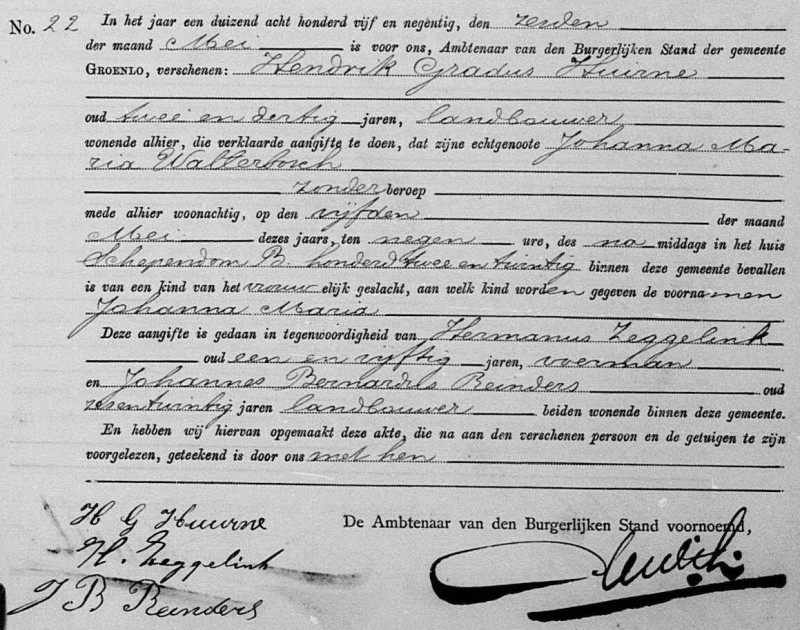 No. 22 In het jaar een duizend acht honderd vijf en negentig, den zesden
der maand Mei is voor ons, Ambtenaar van den Burgerlijken Stand der gemeente
GROENLO, verschenen: Hendrik Gradus Huirne
oud twee en dertig jaren, landbouwer
wonende alhier, die verklaarde aangifte te doen, dat zijne echtgenoote Johanna Ma-
ria Walterbosch
zonder beroep
mede alhier woonachtig, op den vijfden der maand
Mei dezes jaars, ten negen ure, des na middags in het huis
Schependom B. honderd twee en twintig binnen deze gemeente bevallen
is van een kind van het vrouwelijk geslacht, aan welk kind worden gegeven de voornamen
Johanna Maria
Deze aangifte is gedaan in tegenwoordigheid van Hermanus Zeggelink
oud een en vijftig jaren, voerman
en Johannes Bernardus Reinders oud
zesentwintig jaren landbouwer beiden wonende binnen deze gemeente.
En hebben wij hiervan opgemaakt deze akte, die na aan den verschenen persoon en de getuigen te zijn
voorgelezen, geteekend is door ons met hen
H G Huurne
De Ambtenaar van den Burgerlijken Stand voornoemd,
H. Zeggelink
J B Reinders